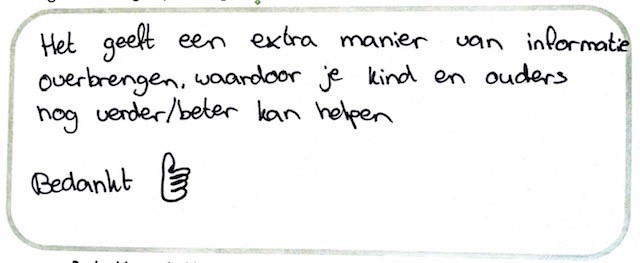 Het geeft een extra manier van informatie
overbrengen, waardoor je kind en ouders
nog verder/beter kan helpen
Bedankt